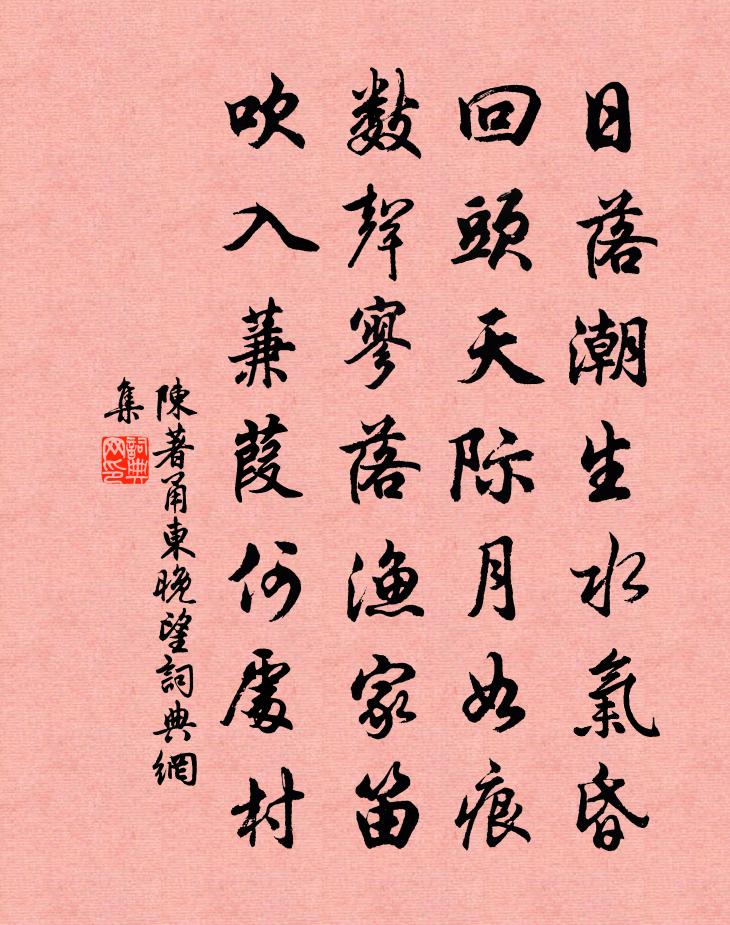 日落潮生水氣昏
回頭天际月如痕
數聲寥落漁家笛
吹入蒹葭何處村
陳著甬東晚望詞典網
集
詞典
网印